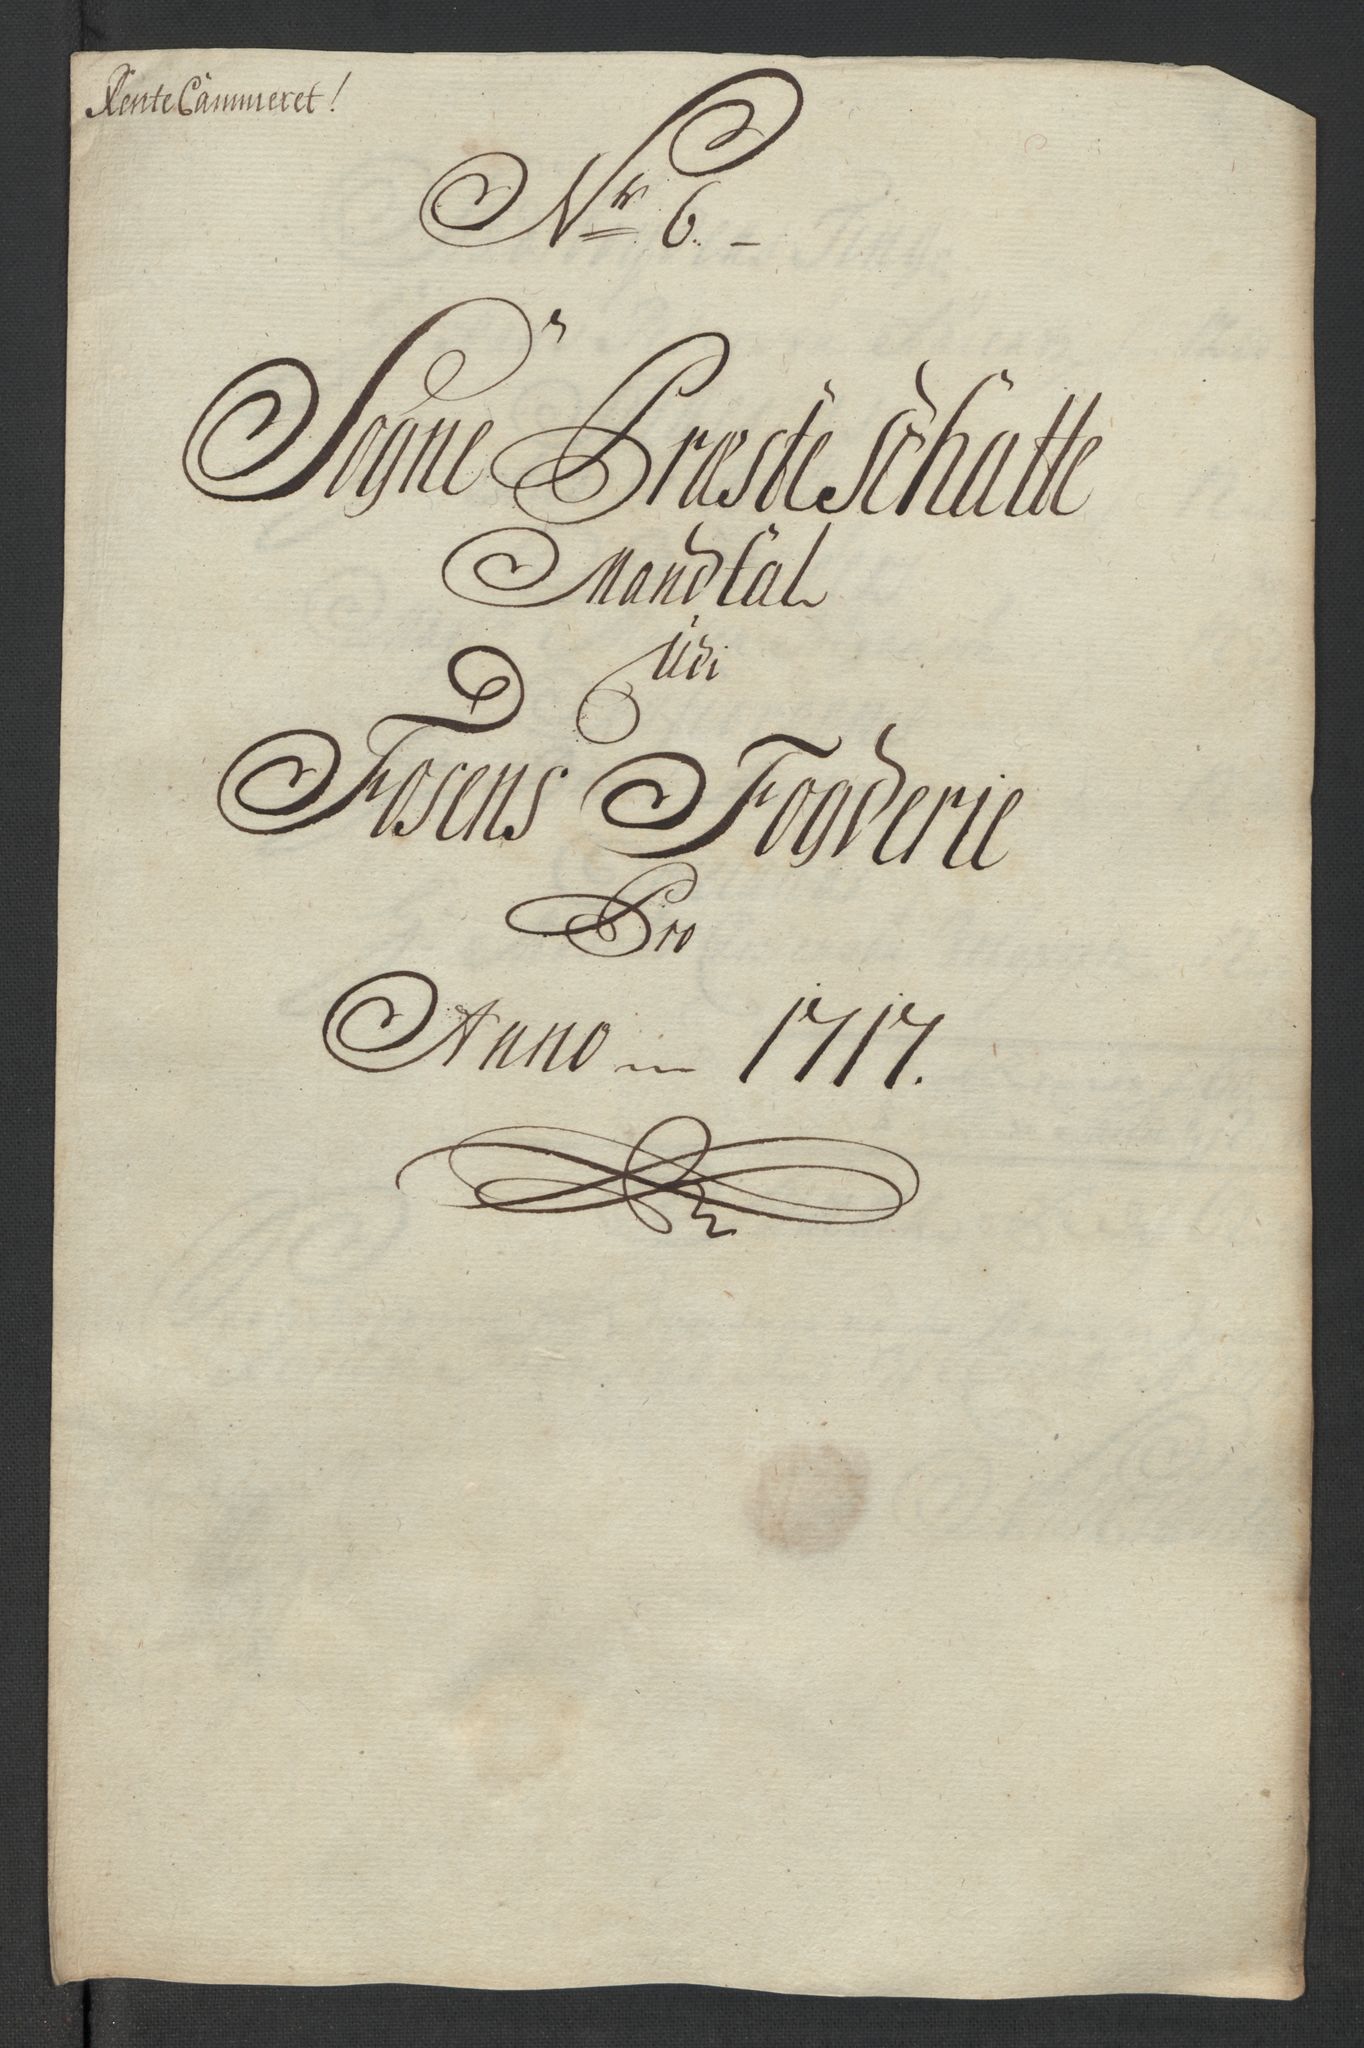 RenteCammeret!
Nr. 6.
Sogne Præste Schatte
Mandtal
Udi
Fosens Fogderie
Pro
Anno 1717.